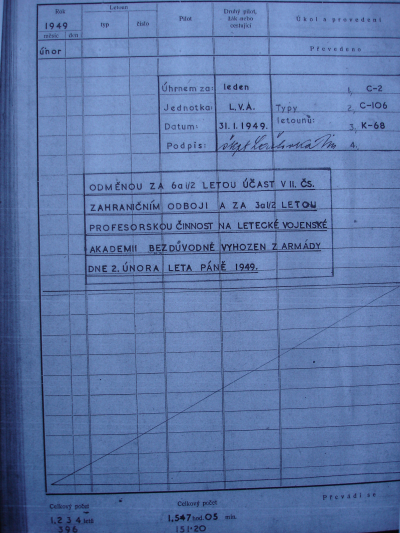 Rok
Letoun
Pilot
Druhý pilot,
žák nebo
cestující
Úkol a provedení
1949
měsíc den
typ
číslo
únor
Převedeno
Úhrnem za: leden
1, C-2
Jednotka: L.V.A.
Typy
2, C-106
Datum: 31.1.1949.
letounů:
3, K-68
Podpis: škpt
4.
ODMĚNOU ZA 6 a 1/2 LETOU ÚČAST V II. ČS.
ZAHRANIČNÍM ODBOJI A ZA 3 a 1/2 LETOU
PROFESORSKOU ČINNOST NA LETECKÉ VOJENSKÉ
AKADEMII BEZDŮVODNĚ VYHOZEN Z ARMÁDY
DNE 2. ÚNORA LETA PÁNĚ 1949.
Převádí se
Celkový počet
Celkový počet
1,234 letů
1,547 hod. 05 min.
396
151·20